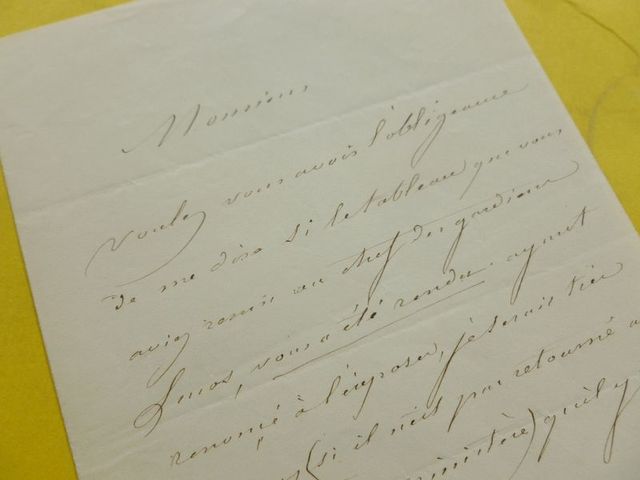 Monsieur
voulez vous avoir l'obligeance
de me dire si le tableau que vous
aviez remis au chef des gardiens
vous a été rendu. ayant
renoncé à l'exposer, je serais très
(si il n'est pas retourné a
ministère) qu'il y